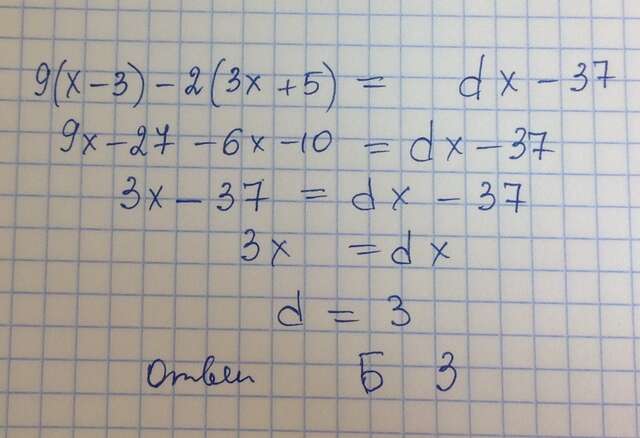 9(x-3)-2(3x+5) = dx-37
9x-27-6x-10 = dx-37
3x-37 = dx-37
3x = dx
d = 3
Ответ Б 3